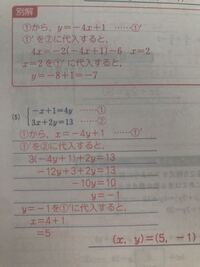 別解
①から、y=-4x+1 ……①′
①′を②に代入すると、
4x=-2(-4x+1)-6 x=2
x=2を①′に代入すると、
y=-8+1=-7
(5) { -x+1=4y ……①
3x+2y=13 ……②
①から、x=-4y+1 ……①′
①′を②に代入すると、
3(-4y+1)+2y=13
-12y+3+2y=13
-10y=10
y=-1
y=-1を①′に代入すると、
x=4+1
=5
(x, y)=(5, -1)